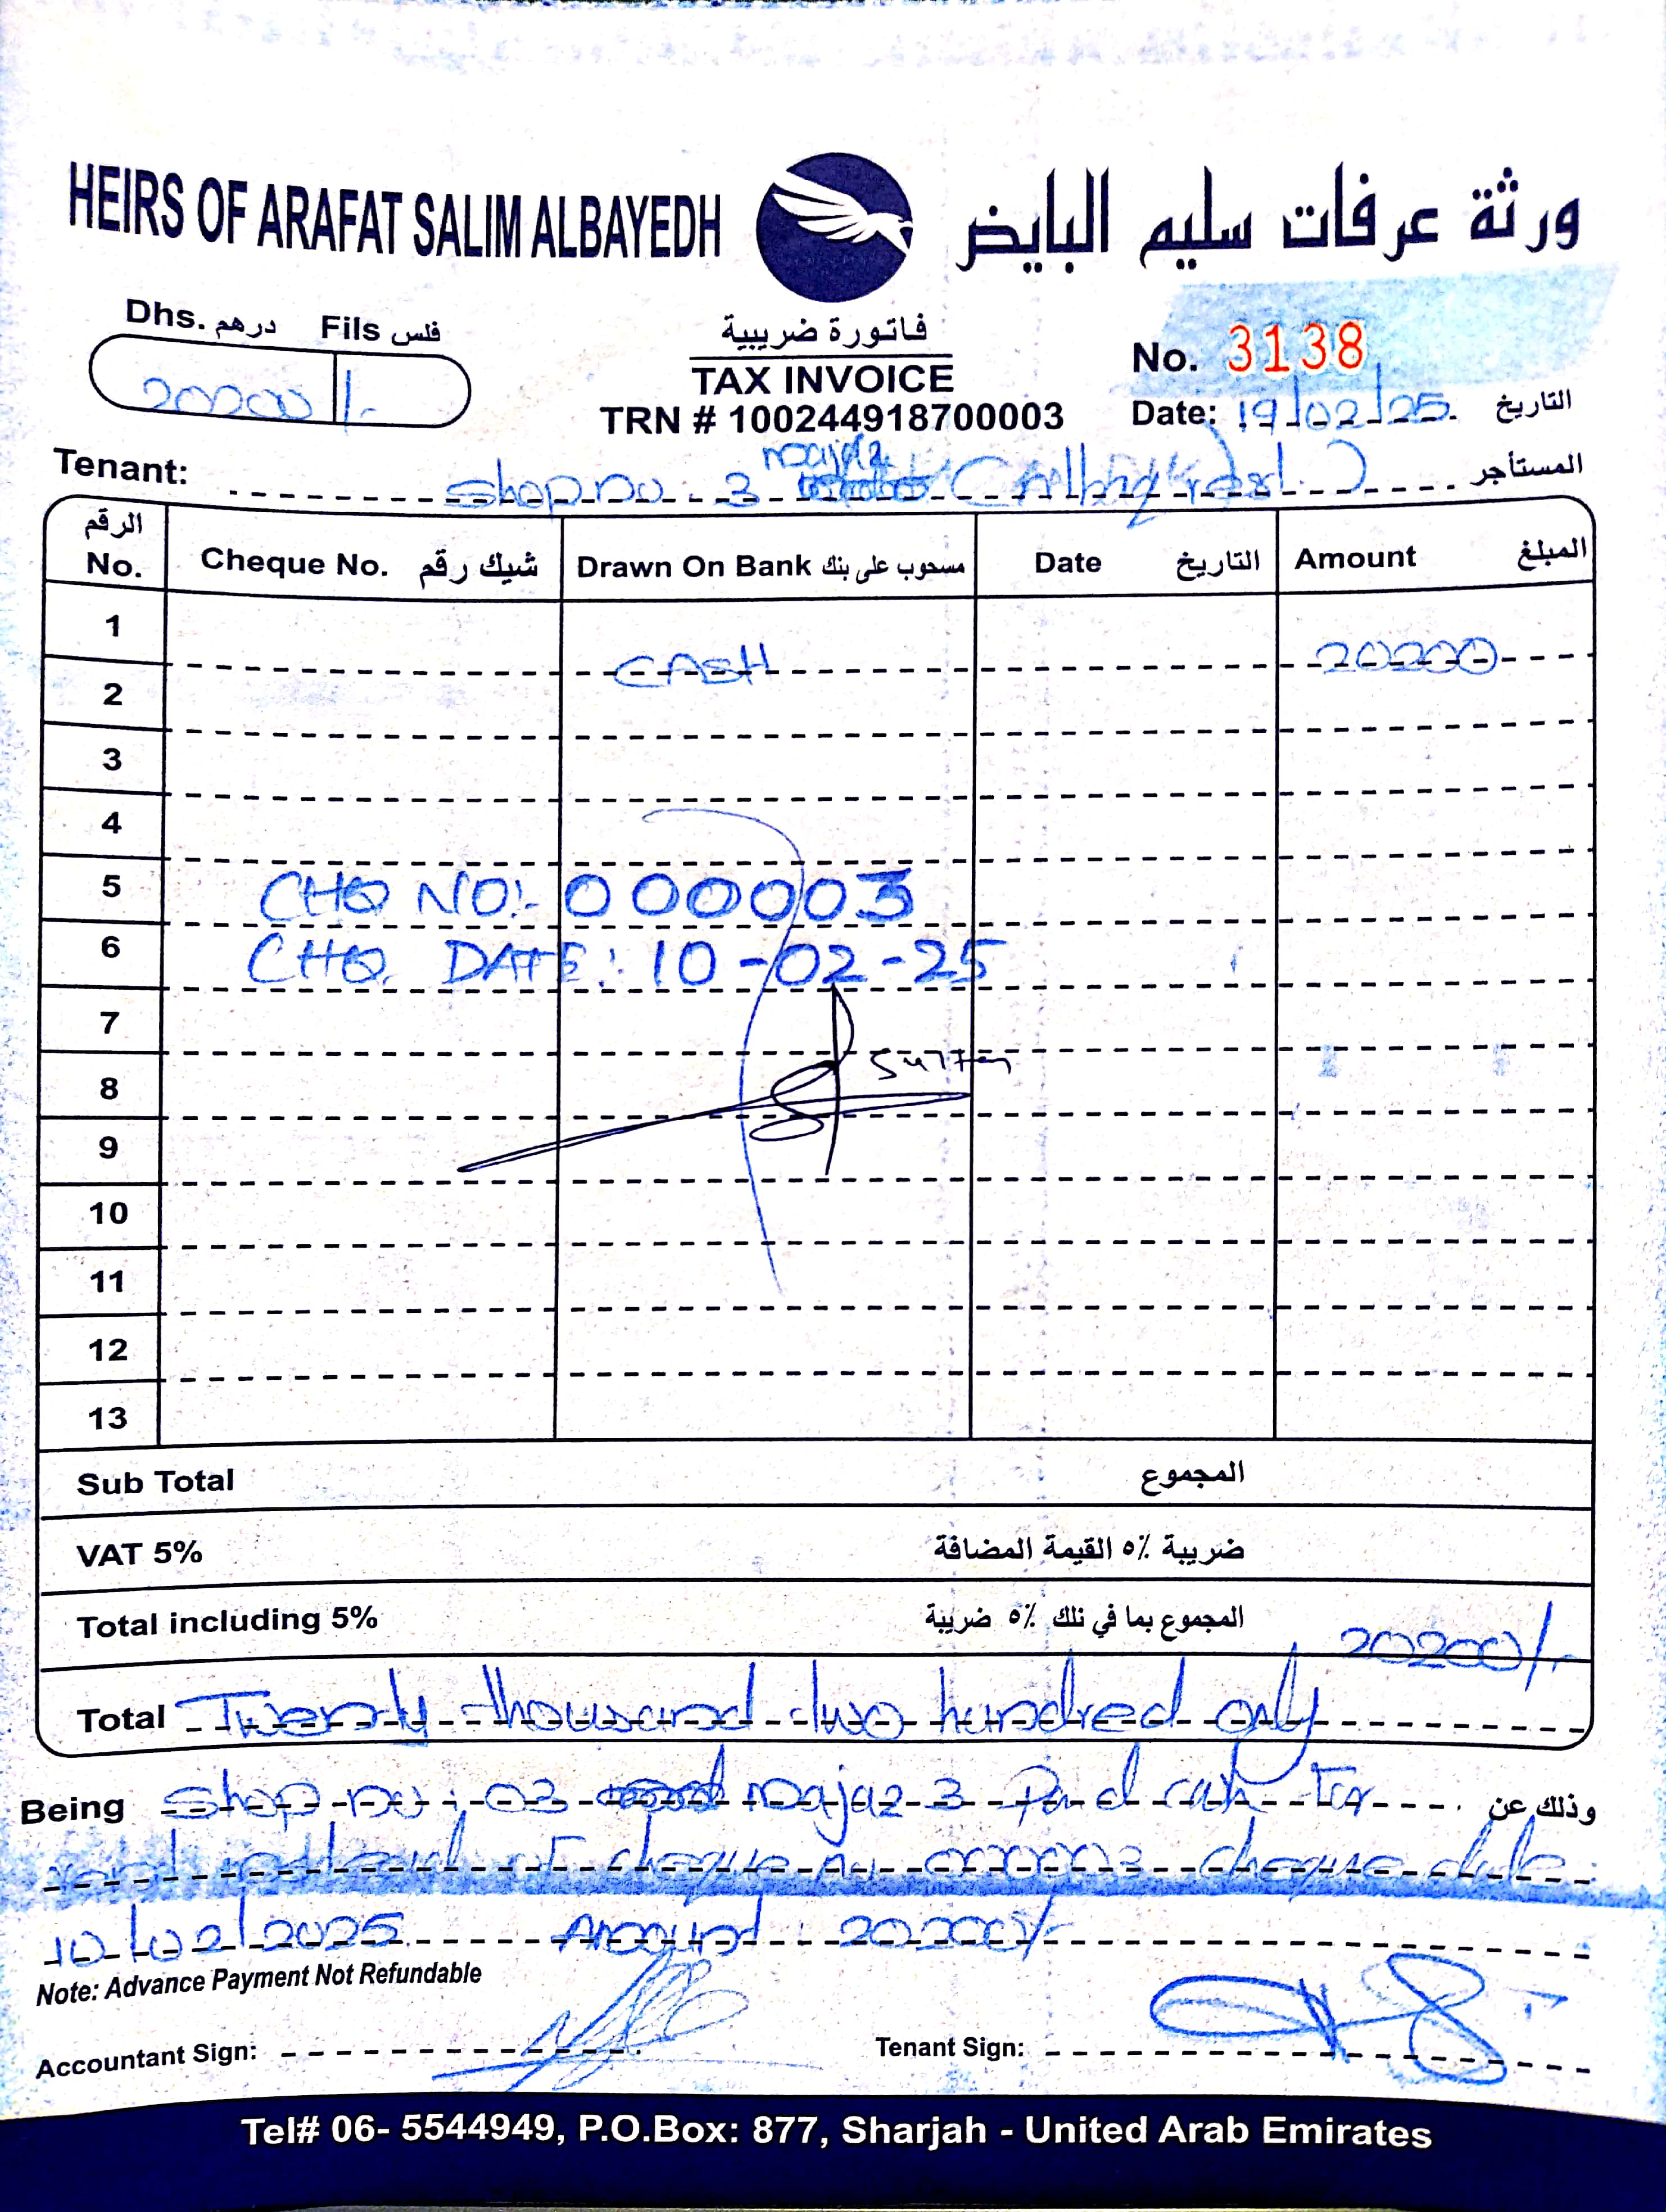 HEIRS OF ARAFAT SALIM ALBAYEDH ورثة عرفات سليم البايض
Dhs. درهم Fils فلس
20200 /-
فاتورة ضريبية
TAX INVOICE
TRN # 100244918700003
No. 3138
Date: 19/02/25 التاريخ
Tenant: Shop no. 3 majaz المستأجر
الرقم No. Cheque No. شيك رقم Drawn On Bank مسحوب على بنك Date التاريخ Amount المبلغ
1 CASH 20200
2
3
4
5 CHQ NO:- 000003
6 CHQ. DATE: 10-02-25
7
8 Sultan
9
10
11
12
13
Sub Total المجموع
VAT 5% ضريبة ٥٪ القيمة المضافة
Total including 5% المجموع بما في ذلك ٥٪ ضريبة 20200/-
Total Twenty thousand two hundred only
Being Shop no: 03 majaz-3 Paid cash for وذلك عن
rent instead of cheque no 000003 cheque date:
10/02/2025 Amount: 20200/-
Note: Advance Payment Not Refundable
Accountant Sign: Tenant Sign:
Tel# 06- 5544949, P.O.Box: 877, Sharjah - United Arab Emirates